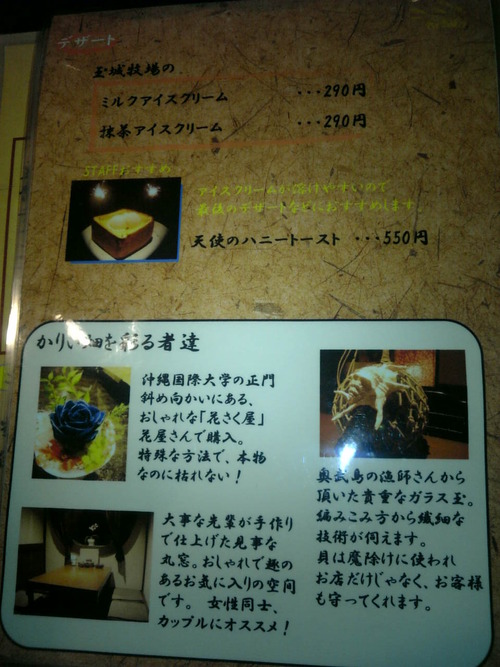 デザート
玉城牧場の
ミルクアイスクリーム ・・・290円
抹茶アイスクリーム ・・・290円
STAFFおすすめ
アイスクリームが溶けやすいので
最後のデザートなどにおすすめします。
天使のハニートースト ・・・550円
かりい畑を彩る者達
沖縄国際大学の正門
斜め向かいにある、
おしゃれな「花さく屋」
花屋さんで購入。
特殊な方法で、本物
なのに枯れない！
大事な先輩が手作り
で仕上げた見事な
丸窓。おしゃれで趣の
あるお気に入りの空間
です。 女性同士、
カップルにオススメ！
奥武島の漁師さんから
頂いた貴重なガラス玉。
編みこみ方から繊細な
技術が伺えます。
貝は魔除けに使われ
お店だけじゃなく、お客様
も守ってくれます。